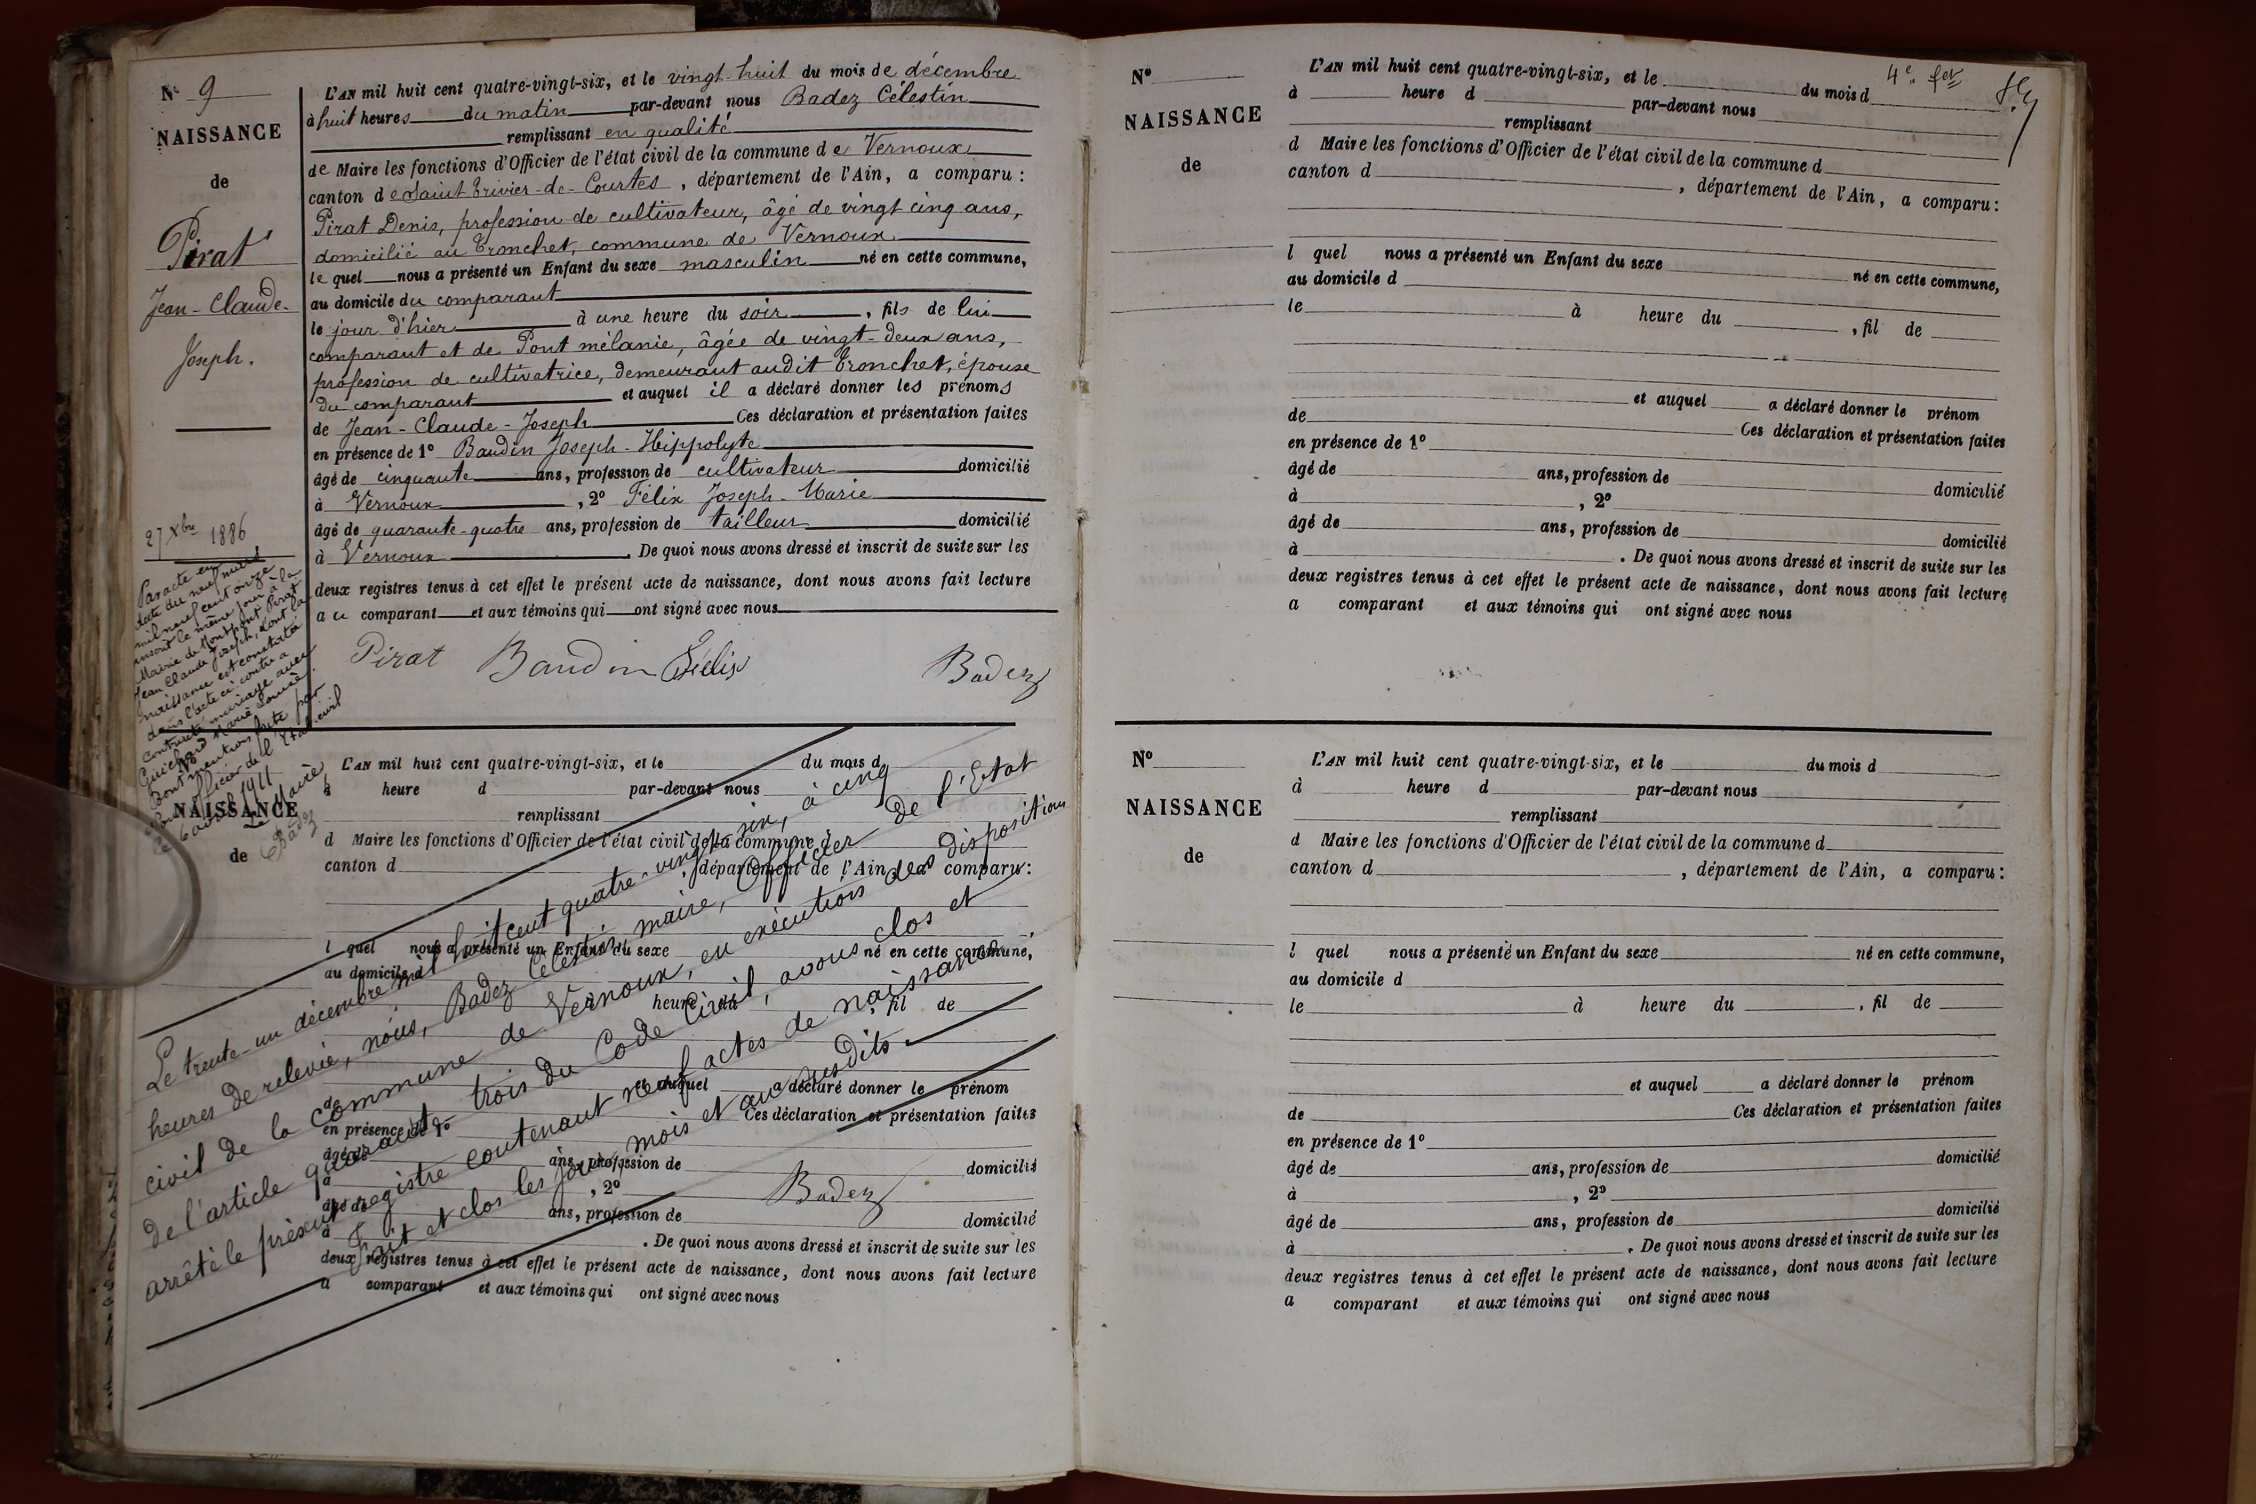 N° 9
NAISSANCE
de
Pirat
Jean-Claude-
Joseph.
27 Xbre 1886
Par acte en
date du neuf mars
mil neuf cent onze
inscrit le même jour à la
Mairie de Montpont Pirat
Jean Claude Joseph, dont la
naissance est constatée
dans l'acte ci-contre a
contracté mariage avec
Guichard Marie Louise
Dont mention faite par
Nous officier de l'Etat civil
le 6 avril 1911
Le Maire
Badez
L'AN mil huit cent quatre-vingt-six, et le vingt-huit du mois de décembre
à huit heures du matin par-devant nous Badez Célestin
remplissant en qualité
de Maire les fonctions d'Officier de l'état civil de la commune de Vernoux
canton de Saint Trivier-de-Courtes, département de l'Ain, a comparu :
Pirat Denis, profession de cultivateur, âgé de vingt cinq ans,
domicilié au Tronchet, commune de Vernoux
le quel nous a présenté un Enfant du sexe masculin né en cette commune,
au domicile du comparant
le jour d'hier à une heure du soir, fils de lui
comparant et de Pont mélanie, âgée de vingt-deux ans,
profession de cultivatrice, demeurant audit Tronchet, épouse
du comparant et auquel il a déclaré donner les prénoms
de Jean-Claude-Joseph Ces déclaration et présentation faites
en présence de 1° Baudin Joseph-Hippolyte
âgé de cinquante ans, profession de cultivateur domicilié
à Vernoux, 2° Félix Joseph-Marie
âgé de quarante-quatre ans, profession de tailleur domicilié
à Vernoux. De quoi nous avons dressé et inscrit de suite sur les
deux registres tenus à cet effet le présent acte de naissance, dont nous avons fait lecture
au comparant et aux témoins qui ont signé avec nous
Pirat Baudin Félix Badez
N°
NAISSANCE
de
L'AN mil huit cent quatre-vingt-six, et le du mois d
à heure d par-devant nous
remplissant
d Maire les fonctions d'Officier de l'état civil de la commune d
canton d , département de l'Ain, a comparu :
l quel nous a présenté un Enfant du sexe né en cette commune,
au domicile d
heure du , fil de
et auquel a déclaré donner le prénom
de Ces déclaration et présentation faites
en présence de 1°
âgé de ans, profession de domicilié
à , 2°
âgé de ans, profession de domicilié
à . De quoi nous avons dressé et inscrit de suite sur les
deux registres tenus à cet effet le présent acte de naissance, dont nous avons fait lecture
a comparant et aux témoins qui ont signé avec nous
Le trente-un décembre mil huit cent quatre-vingt-six, à cinq
heures de relevée, nous, Badez Célestin, maire, Officier de l'Etat
civil de la Commune de Vernoux, en exécution des dispositions
de l'article quarante-trois du Code Civil, avons clos et
arrêté le présent registre contenant neuf actes de naissance
Fait et clos les jour, mois et an susdits
Badez
4e. fet
N°
NAISSANCE
de
L'AN mil huit cent quatre-vingt-six, et le du mois d
à heure d par-devant nous
remplissant
d Maire les fonctions d'Officier de l'état civil de la commune d
canton d , département de l'Ain, a comparu :
l quel nous a présenté un Enfant du sexe né en cette commune,
au domicile d
le à heure du , fil de
et auquel a déclaré donner le prénom
de Ces déclaration et présentation faites
en présence de 1°
âgé de ans, profession de domicilié
à , 2°
âgé de ans, profession de domicilié
à . De quoi nous avons dressé et inscrit de suite sur les
deux registres tenus à cet effet le présent acte de naissance, dont nous avons fait lecture
a comparant et aux témoins qui ont signé avec nous
N°
NAISSANCE
de
L'AN mil huit cent quatre-vingt-six, et le du mois d
à heure d par-devant nous
remplissant
d Maire les fonctions d'Officier de l'état civil de la commune d
canton d , département de l'Ain, a comparu :
l quel nous a présenté un Enfant du sexe né en cette commune,
au domicile d
le à heure du , fil de
et auquel a déclaré donner le prénom
de Ces déclaration et présentation faites
en présence de 1°
âgé de ans, profession de domicilié
à , 2°
âgé de ans, profession de domicilié
à . De quoi nous avons dressé et inscrit de suite sur les
deux registres tenus à cet effet le présent acte de naissance, dont nous avons fait lecture
a comparant et aux témoins qui ont signé avec nous